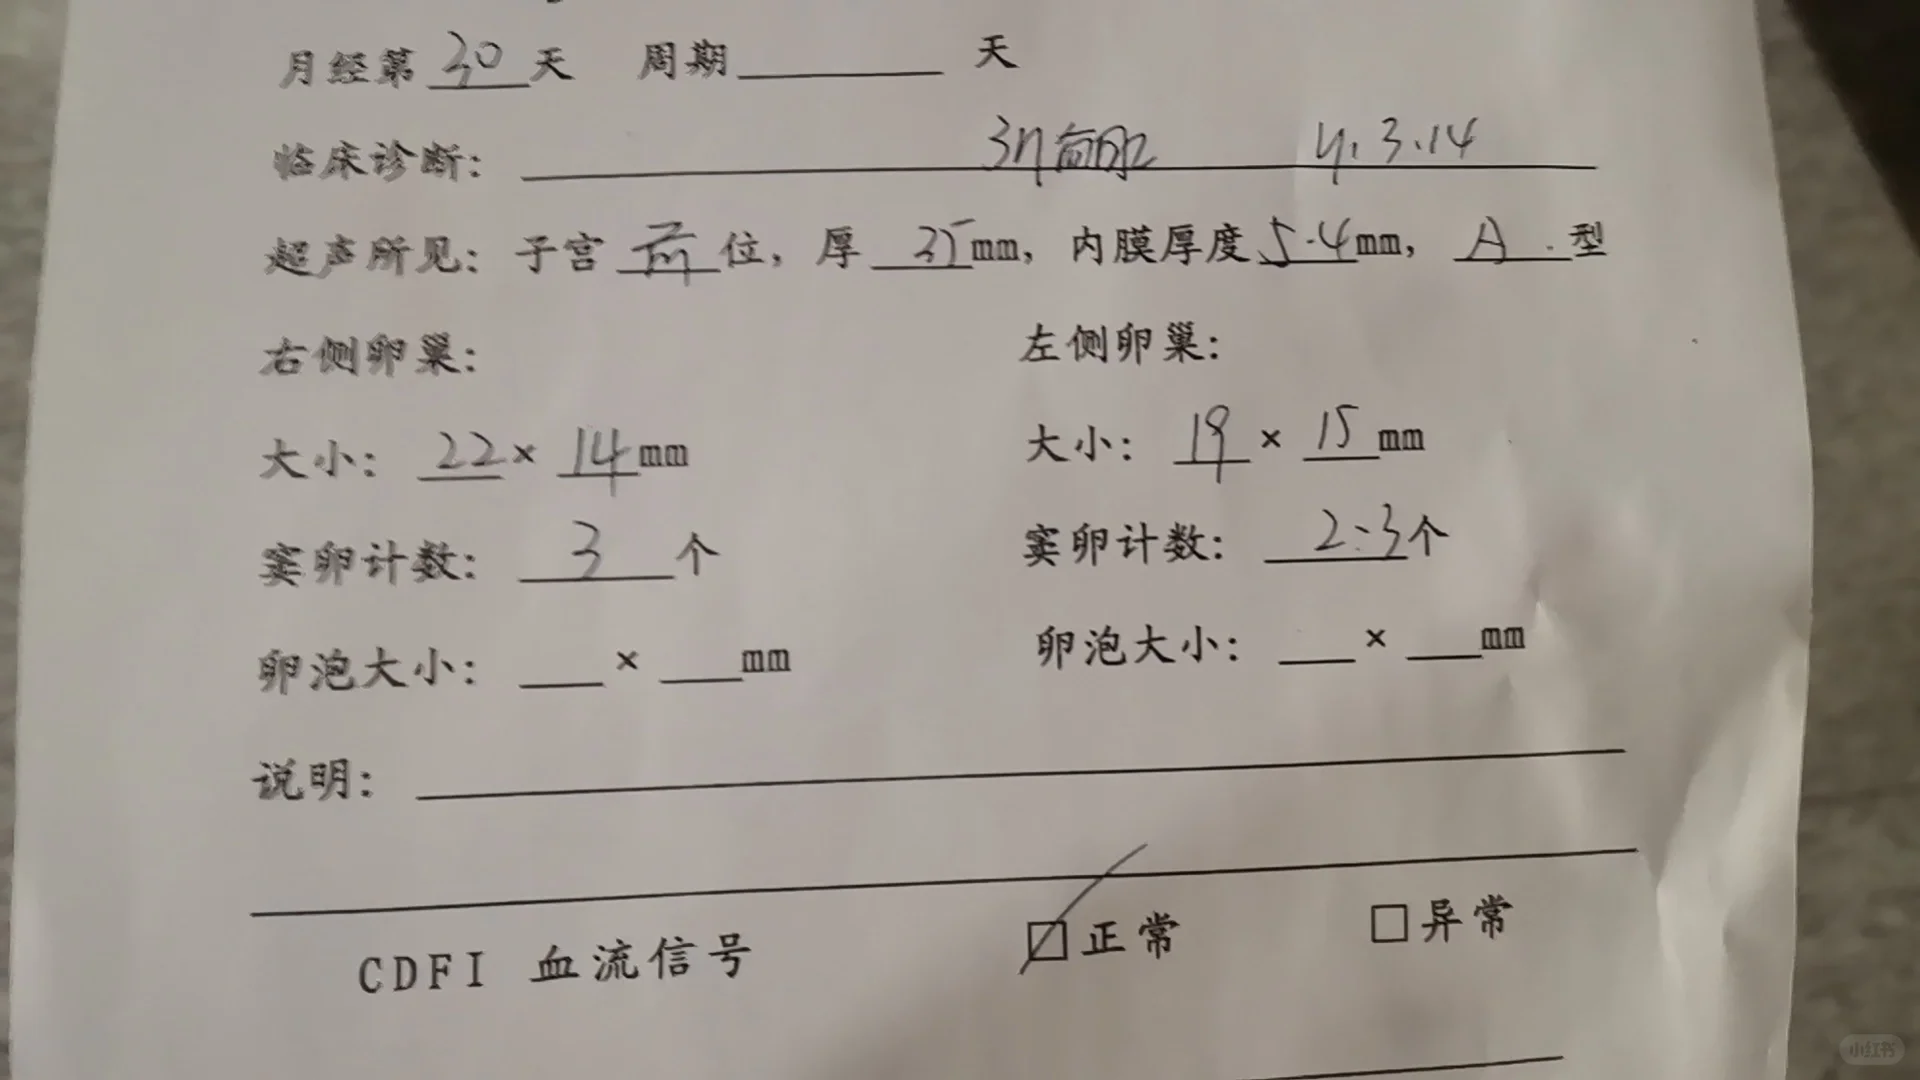 月经第 30 天 周期 天
临床诊断: 3.14
超声所见: 子宫 前 位, 厚 35 mm, 内膜厚度 5.4 mm, A 型
右侧卵巢: 左侧卵巢:
大小: 22 × 14 mm 大小: 19 × 15 mm
窦卵计数: 3 个 窦卵计数: 2-3 个
卵泡大小: × mm 卵泡大小: × mm
说明:
CDFI 血流信号 ☑正常 □异常
小红书